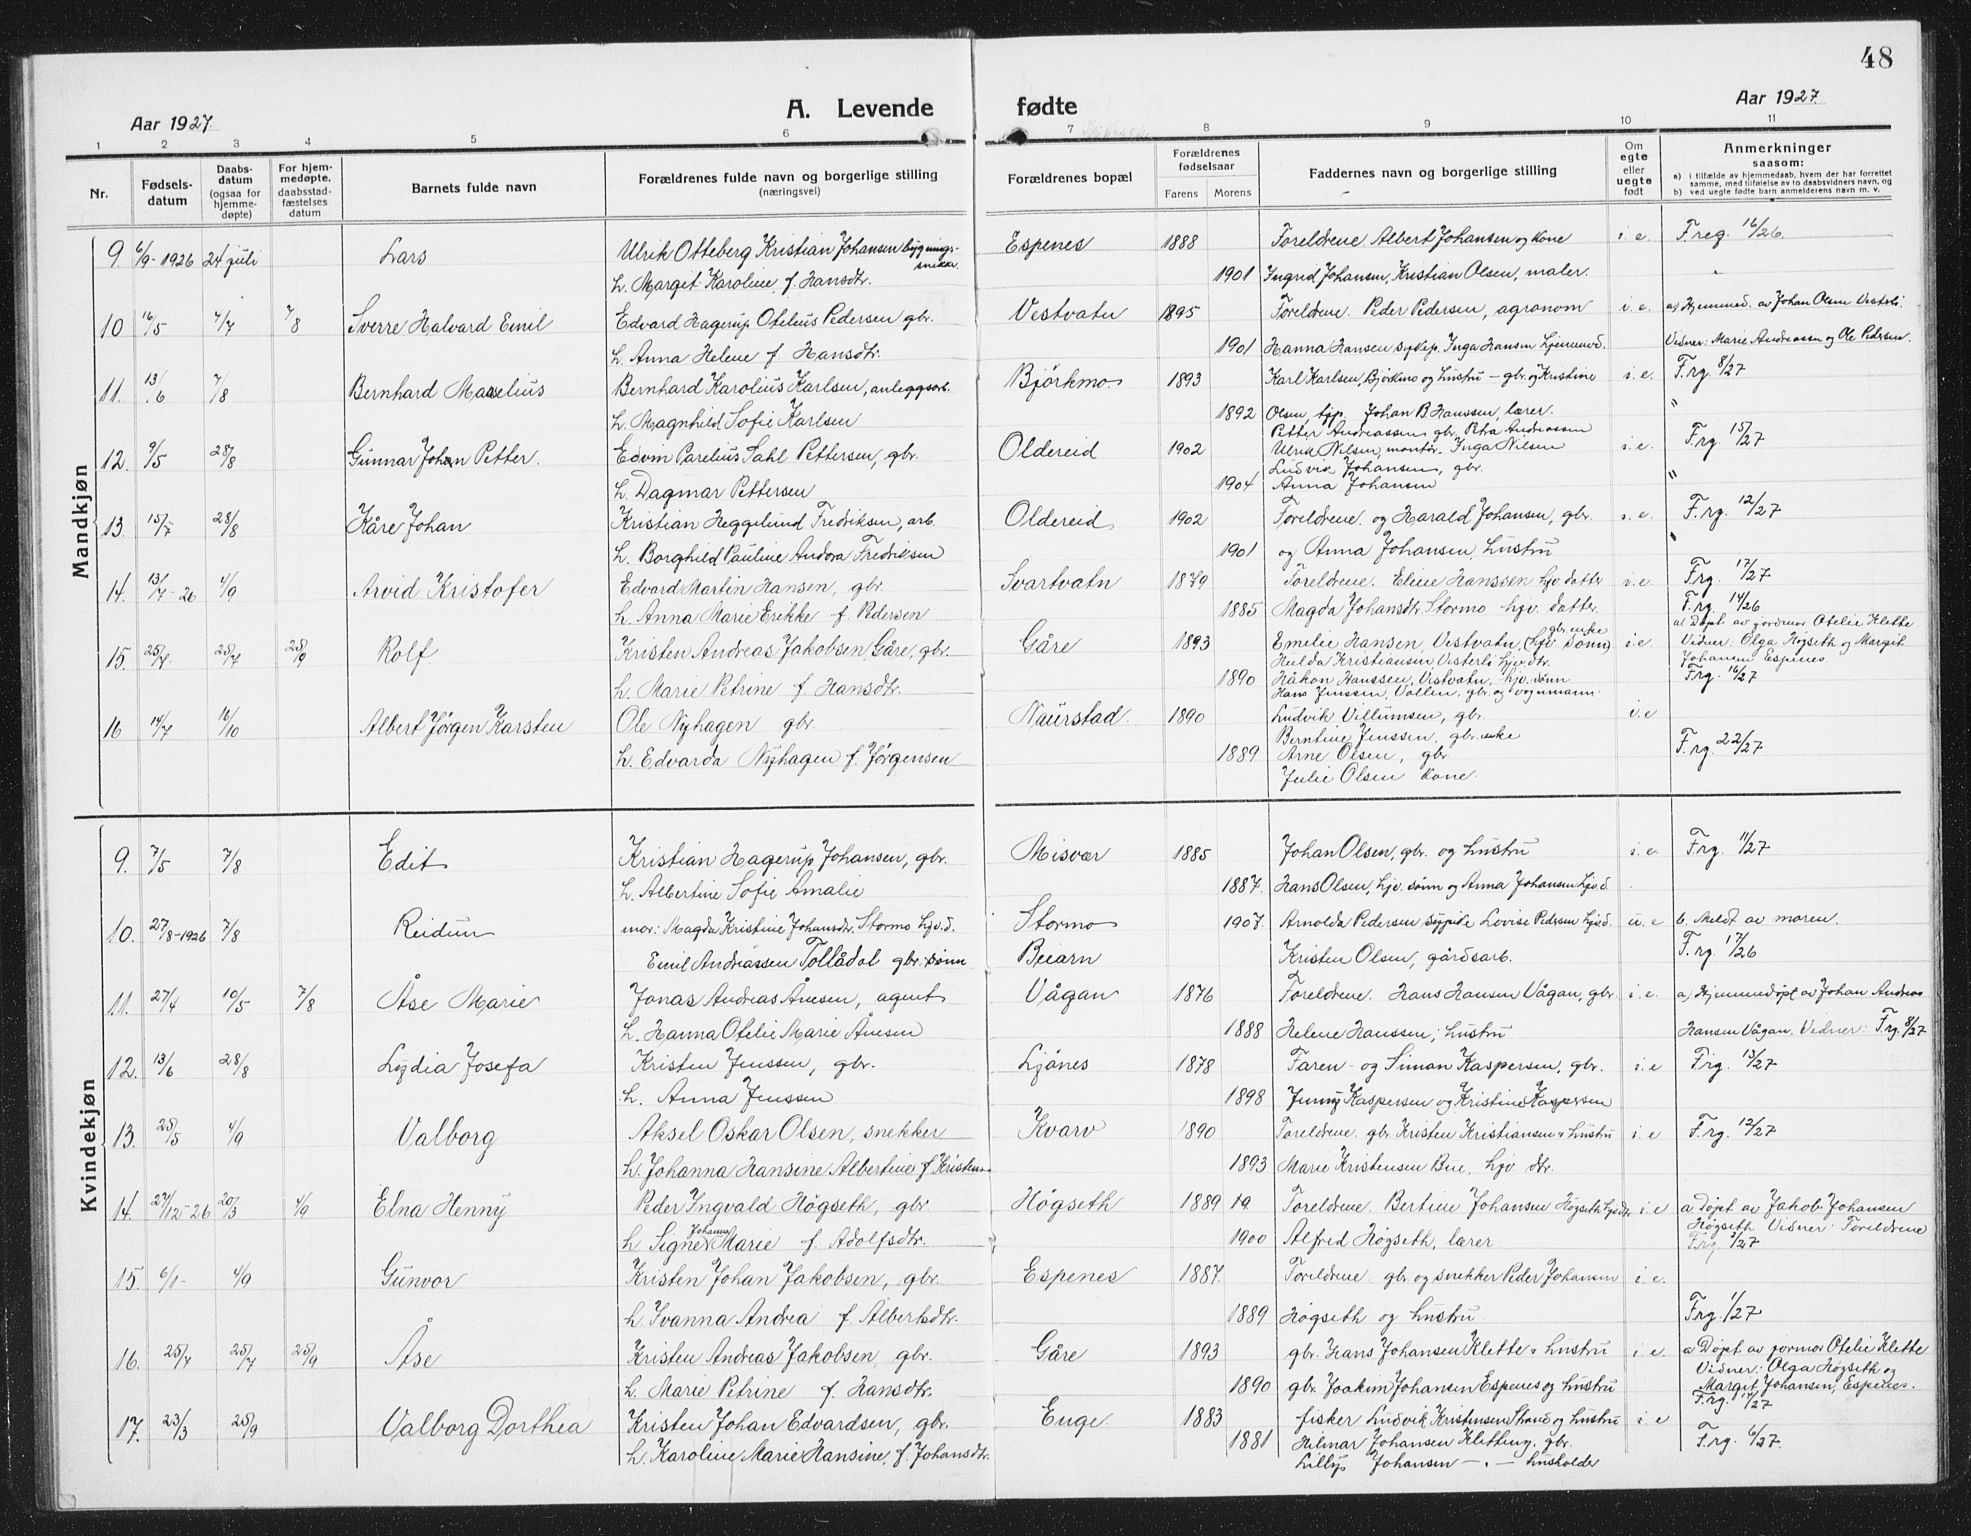 48
Aar 1927.
A. Levende
fødte
Aar 1927.
1 2 3 4 5 6 7 8 9 10 11
Nr.
Fødsels-datum
Daabs-datum (ogsaa for hjemme-døpte)
For hjem-medøpte, daabsstad-fæstelses datum
Barnets fulde navn
Forældrenes fulde navn og borgerlige stilling (næringsvei)
Forældrenes bopæl
Forældrenes fødselsaar
Farens Morens
Faddernes navn og borgerlige stilling
Om egte eller uegte født
Anmerkninger saasom:
a) i tilfælde av hjemmedaab, hvem der har forrettet samme, med tilføielse av to daabsvidners navn, og
b) ved uegte fødte barn anmelderens navn m. v.
Mandkjøn
9. 6/9-1926 24 juli Lars Ulrik Otteberg Kristian Johansen bygnings-snikker Espenes 1888 Foreldrene Albert Johansen og kone i. e. F.reg. 16/26.
h. Margit Karoline f. Hansdtr. 1901 Ingrid Johansen, Kristian Olsen, maler.
10 16/5 7/7 7/8 Sverre Halvard Emil Edvard Hagerup Otelius Pedersen gbr. Vestvatn 1895 Foreldrene. Peder Pedersen, agronom i. e. a) Hjemmed. av Johan Olsen Vesterli
h. Anna Helene f. Hansdtr. 1901 Hanna Hansen sykep. Inga Hansen hjemmev. Vidner: Marie Andreassen og Ole Pedersen.
11. 13/6 7/8 Bernhard Marselius Bernhard Karolius Karlsen, anleggsarb. Bjørkmo 1893 Karl Karlsen, Bjørkmo og hustru – gbr. og Kristine i. e. F.rg. 8/27
h. Magnhild Sofie Karlsen 1892 Olsen, tjp. Johan B. Hanssen, lærer. "
Petter Andreassen gbr. Petra Andreassen
12. 9/5 28/8 Gunnar Johan Petter. Edvm Parelius Sahl Pettersen, gbr. Oldereid 1902 Ulrik Nilsen, montør. Inga Nilsen i. e. F.rg. 15/27
Ludvik Johansen, gbr.
h. Dagmar Pettersen 1904 Anna Johansen "
13. 15/7 28/8 Kåre Johan Kristian Heggelund Fredriksen, arb. Oldereid 1902 Foreldrene. og Harald Johansen, gbr. i. e. F.rg. 12/27
h. Borghild Pauline Andora Fredriksen 1901 og Anna Johansen, hustru "
14. 13/7-26 4/9 Arvid Kristofer Edvard Martin Hansen, gbr. Svartvatn 1879 Foreldrene. Eline Hanssen hjv datter i. e. F.rg. 17/27
h. Anna Marie Erikke f. Pedersen 1885 Magda Johansdtr. Stormo hjv. datter. F.rg. 14/26
15. 25/7 25/7 25/9 Rolf Kristen Andreas Jakobsen, Gåre, gbr. Gåre 1893 Emelie Hansen, Vestvatn, gbr. enke (hjv sønn) i. e. a) Døpt av jordmor Otelie Klette
Hulda Kristiansen Vesterli hjv. dtr. Vidner: Olga Høgseth og Margit Johansen Espenes.
h. Marie Petrine f. Hansdtr. 1890 Håkon Hanssen, Vestvatn, hjv. sønn F.rg. 16/27
Hans Jenssen, Vollen, gbr. og vognmann.
16 14/7 16/10 Albert Jørgen Karsten Ole Nyhagen gbr. Naurstad. 1890 Ludvik Villumsen, gbr. i. e
Berntine Jenssen, gbr. enke
h. Edvarda Nyhagen f. Jørgensen 1889 Arne Olsen, gbr F.rg. 22/27
Julie Olsen kone.
Kvindekjøn
9. 7/5 7/8 Edit Kristian Hagerup Johansen, gbr. Misvær 1885 Johan Olsen, gbr. og hustru i. e. F.rg. 11/27
h. Albertine Sofie Amalie 1887. Hans Olsen, hjv. sønn og Anna Johansen hjv. d
10. 27/8-1926 7/8 Reidun mor: Magda Kristine Johansdtr. Stormo hjv. d. Stormo 1907. Arnolda Pedersen sypike Lovise Pedersen hjv. d. u. e b. Meldt av moren.
Emil Andreassen Tollådal gbr. sønn Beiarn Kristen Olsen, gårdsarb. F.rg. 17/26
11. 27/4 10/5 7/8 Åse Marie Jonas Andreas Ånesen, agent Vågan 1876 Foreldrene. Hans Hansen Vågan, gbr i. e. a) Hjemmedøpt av Johan Andreas
h. Hanna Otelie Marie Ånesen 1888 Helene Hanssen, hustru Hansen Vågan. Vidner: F.rg. 8/27
12. 13/6 28/8 Lydia Josefa Kristen Jenssen, gbr. Ljønes 1878 Faren – og Simon Kaspersen, gbr. i. e F.rg. 13/27
h. Anna Jenssen 1898 Jenny Kaspersen og Kristine Kaspersen
13. 25/5 4/9 Valborg Aksel Oskar Olsen, snekker Kvarv 1890 Foreldrene. gbr. Kristen Kristiansen & hustru i. e F.rg. 12/27
h. Johanna Hansine Albertine f Kristens. 1893 Marie Kristensen Bue, hjv dtr.
14. 27/12-26 20/3 4/9 Elna Henny Peder Ingvald Høgseth, gbr Høgseth 1889 19. Foreldrene. Bertine Johansen Høgseth hjv. dtr i. e a Døpt av Jakob Johansen
h Signe Johanna Marie f. Adolfsdtr. 1900 Alfred Høgseth, lærer Høgseth Vidner: Foreldrene
F.rg. 3/27
15. 6/1- 4/9 Gunvor Kristen Johan Jakobsen, gbr. Espenes 1887. Foreldrene gbr. og snekker Peder Johansen i. e.
h. Ivanna Andrea f. Albertsdtr. 1889 Høgseth og hustru F.rg. 1/27
16. 25/7 25/7 25/9 Åse Kristen Andreas Jakobsen, gbr. Gåre 1893 gbr. Hans Johansen Klette & hustru i. e. a Døpt av jormor Otelie Klette
Vidner: Olga Høgseth og
h. Marie Petrine f. Hansdtr. 1890 gbr. Joakim Johansen Espenes og hustru Margit Johansen, Espenes.
F.rg. 17/27
17. 23/3 25/9 Valborg Dorthea Kristen Johan Edvardsen, gbr. Enge 1883 fisker Ludvik Kristensen Strand og hustru i e F.rg. 6/27.
h. Karoline Marie Hansine, f. Johansdtr. 1881 Hilmar Johansen Kletting, gbr.
Lilly Johansen – " – husholder